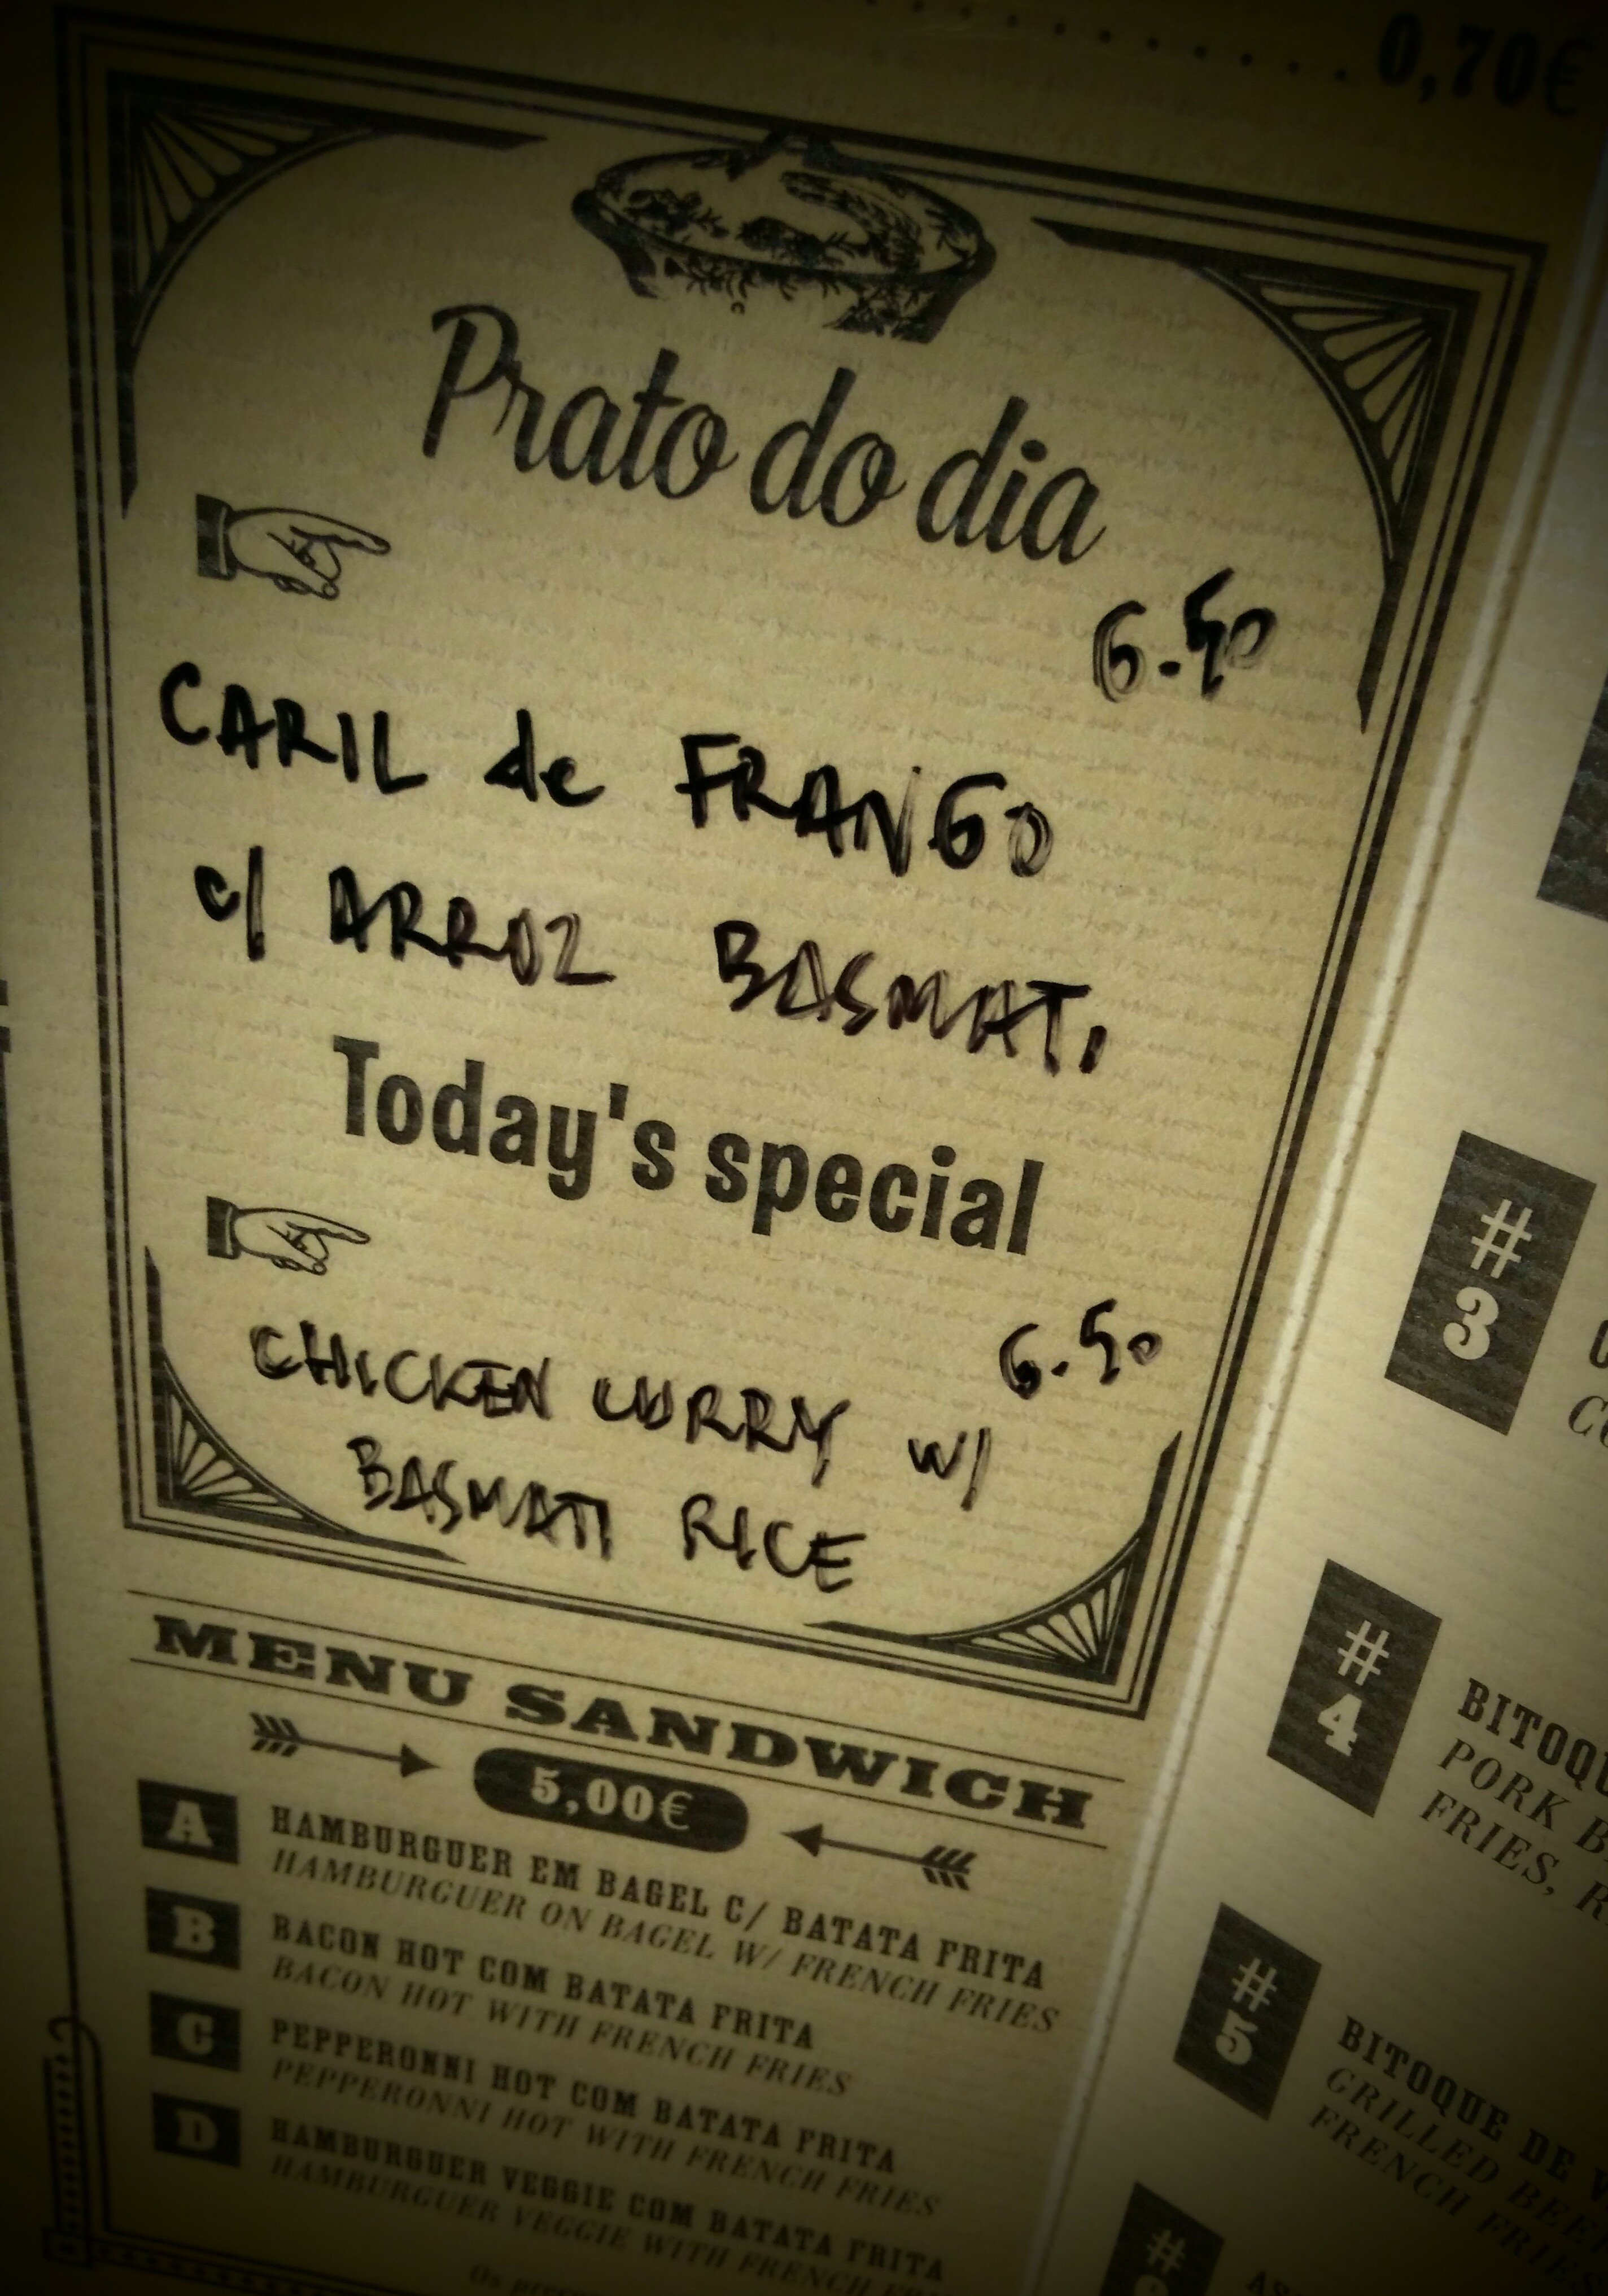 0,70€
Prato do dia
6.50
CARIL de FRANGO
c/ ARROZ BASMATI
Today's special
6.50
CHICKEN CURRY w/
BASMATI RICE
MENU SANDWICH
5,00€
A
HAMBURGUER EM BAGEL C/ BATATA FRITA
HAMBURGUER ON BAGEL W/ FRENCH FRIES
B
BACON HOT COM BATATA FRITA
BACON HOT WITH FRENCH FRIES
C
PEPPERONNI HOT COM BATATA FRITA
PEPPERONNI HOT WITH FRENCH FRIES
D
HAMBURGUER VEGGIE COM BATATA FRITA
HAMBURGUER VEGGIE WITH FRENCH
Os
#
3
#
4
BITOQU
PORK B
FRIES, R
#
5
BITOQUE DE V
GRILLED BEEF
FRENCH FRIES
#